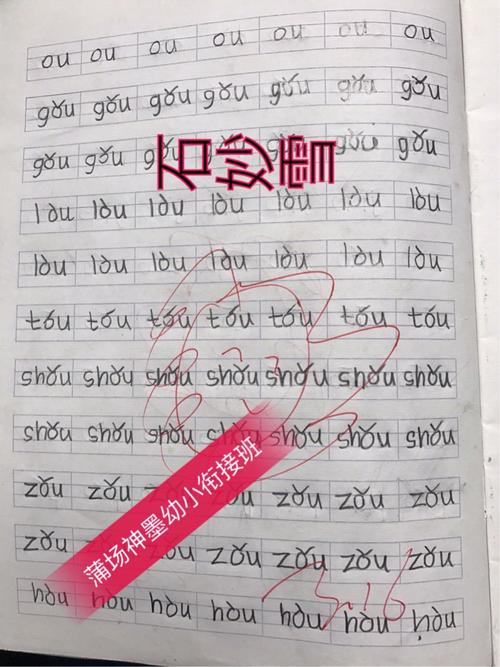 ou ou ou ou ou ou ou
gǒu gǒu gǒu gǒu gǒu gǒu gǒu
gǒu gǒu gǒu gǒu gǒu
石妙雪
lòu lòu lòu lòu lòu lòu lòu
lòu lòu lòu lòu lòu lòu lòu
tóu tóu tóu tóu tóu tóu tóu
shǒu shǒu shǒu shǒu shǒu shǒu shǒu
shǒu shǒu shǒu shǒu shǒu shǒu shǒu
zǒu zǒu zǒu zǒu zǒu zǒu
蒲场神墨幼小衔接班
zǒu zǒu zǒu zǒu zǒu zǒu
hòu hòu hòu hòu hòu hòu hòu
3.16